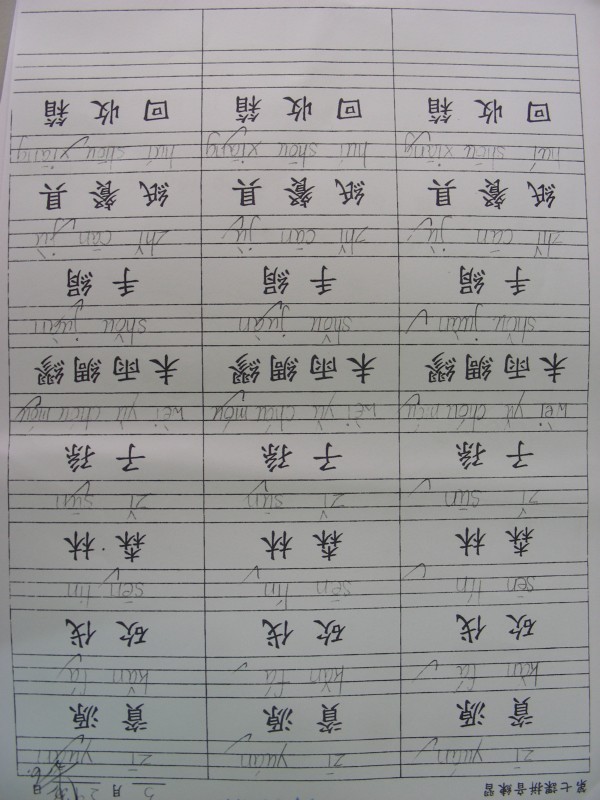 第七課拼音練習 3月 日
zī yuán zī yuán zī yuán
資源 資源 資源
kǎn fá kǎn fá kǎn fá
砍伐 砍伐 砍伐
sēn lín sēn lín sēn lín
森林 森林 森林
zǐ sūn zǐ sūn zǐ sūn
子孫 子孫 子孫
wèi yǔ chóu móu wèi yǔ chóu móu wèi yǔ chóu móu
未雨綢繆 未雨綢繆 未雨綢繆
shǒu juàn shǒu juàn shǒu juàn
手絹 手絹 手絹
zhǐ cān jù zhǐ cān jù zhǐ cān jù
紙餐具 紙餐具 紙餐具
huí shōu xiāng huí shōu xiāng huí shōu xiāng
回收箱 回收箱 回收箱